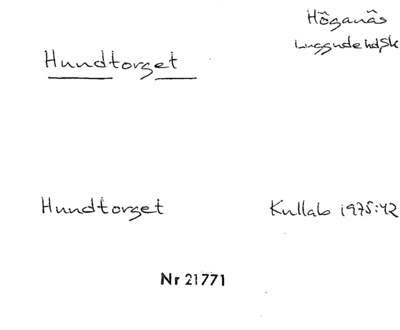 Höganäs
Luggude hd Sk
Hundtorget
Hundtorget Kullab 1975:42
Nr 21771